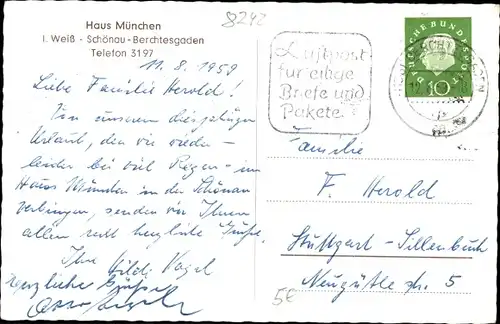 Haus München
I. Weiß - Schönau-Berchtesgaden
Telefon 3197
8242
11. 8. 1959
Liebe Familie Herold!
Von unserem diesjährigen
Urlaub, den wir wieder -
leider bei viel Regen - im
Haus München in der Schönau
verbringen, senden wir Ihnen
allen recht herzliche Grüße.
Ihre Hilde Vogel
Herzliche Grüße
Luftpost
für eilige
Briefe und
Pakete
DEUTSCHE BUNDESPOST
10
Familie
F. Herold
Stuttgart-Sillenbuch
Neugütlestr. 5
5€